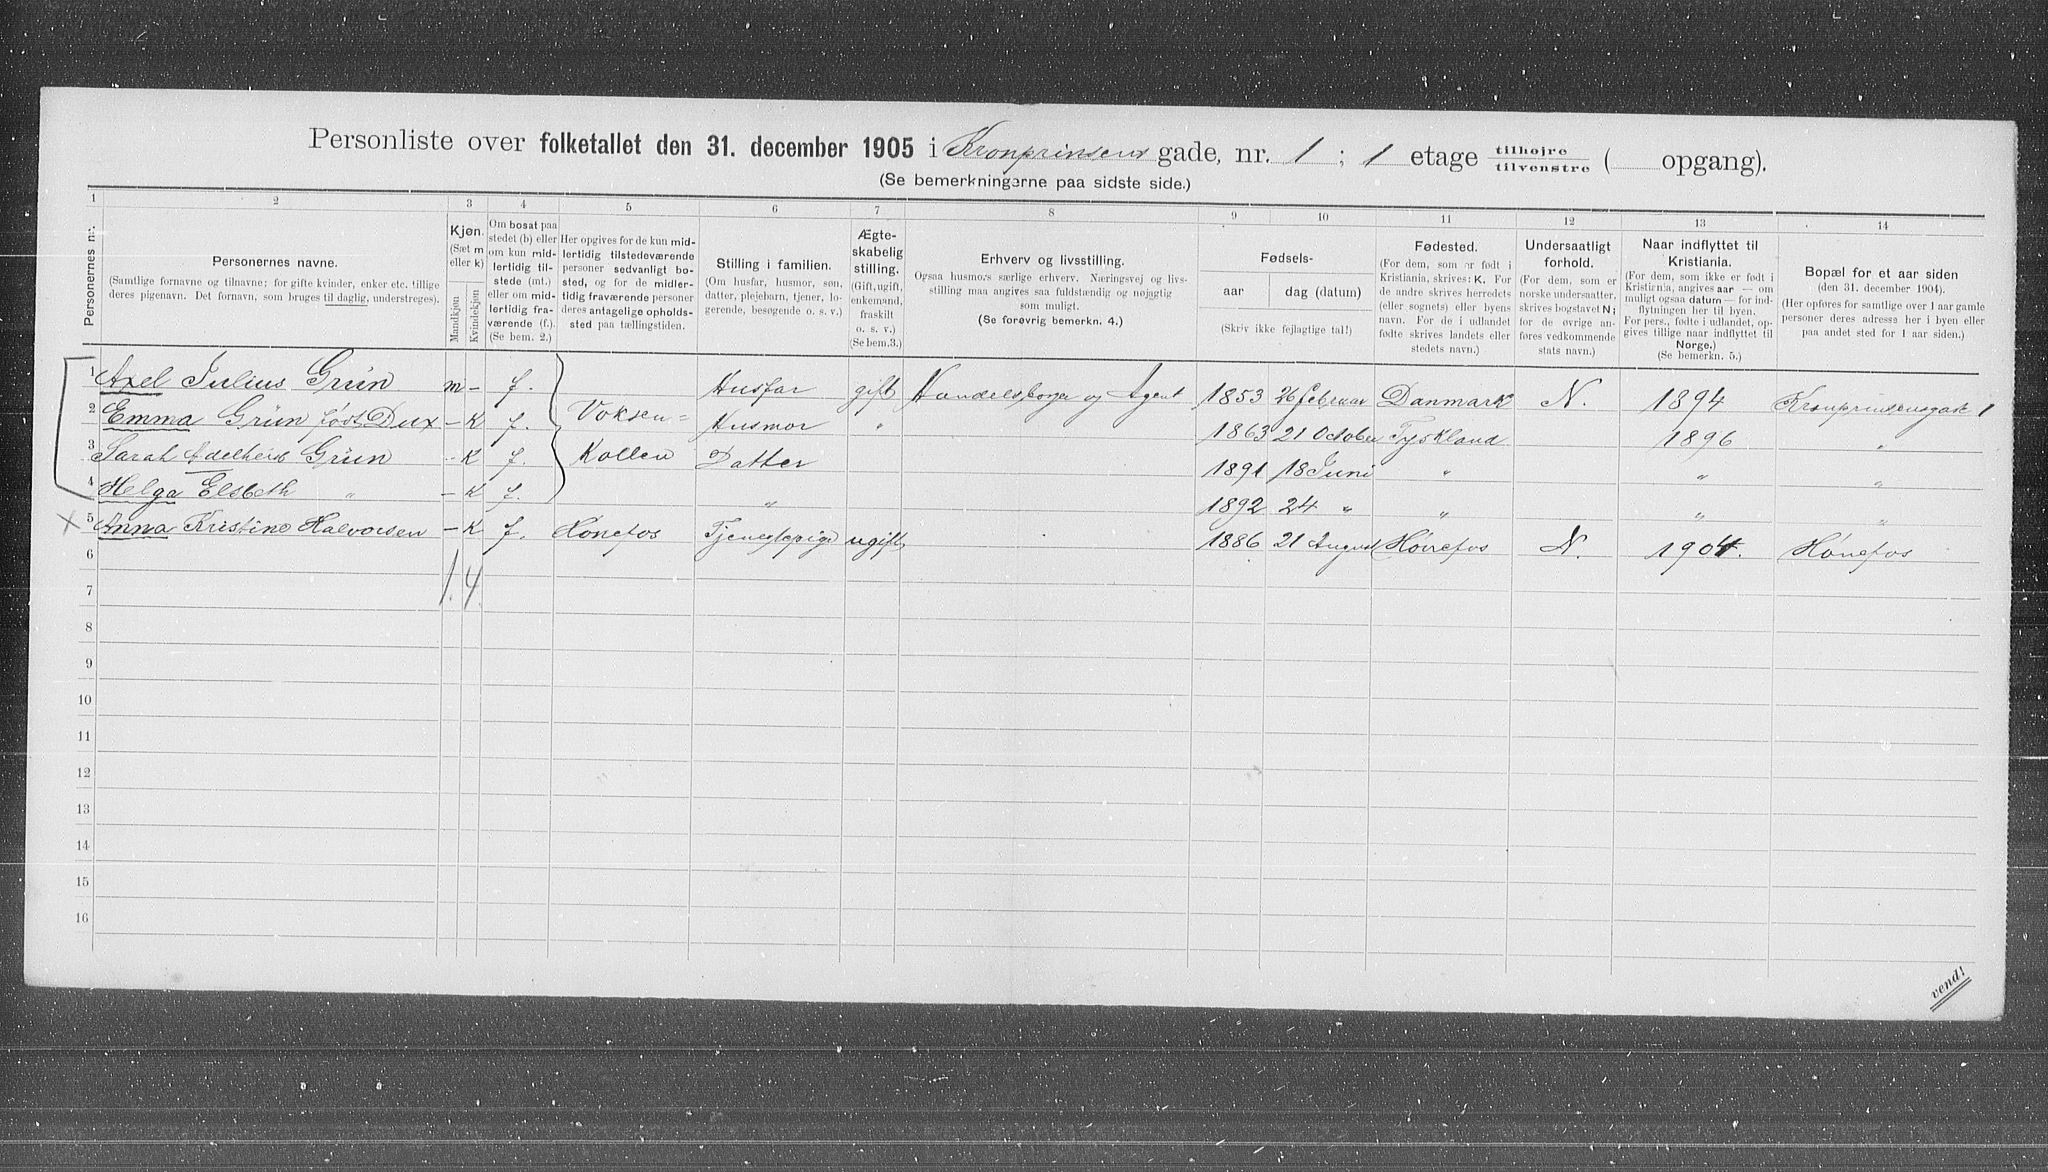 Personliste over folketallet den 31. december 1905 i Kronprinsens gade, nr. 1 ; 1 etage tilhøjre tilvenstre ( opgang).
(Se bemerkningerne paa sidste side.)
1 2 3 4 5 6 7 8 9 10 11 12 13 14
Personernes nr.
Personernes navne.
(Samtlige fornavne og tilnavne; for gifte kvinder, enker etc. tillige
deres pigenavn. Det fornavn, som bruges til daglig, understreges).
Kjøn.
(Sæt m
eller k)
Mandkjøn
Kvindekjøn
Om bosat paa
stedet (b) eller
om kun mid-
lertidig til-
stede (mt.)
eller om mid-
lertidig fra-
værende (f.).
(Se bem. 2.)
Her opgives for de kun mid-
lertidig tilstedeværende
personer sedvanligt bo-
sted, og for de midler-
tidig fraværende personer
deres antagelige opholds-
sted paa tællingstiden.
Stilling i familien.
(Om husfar, husmor, søn,
datter, plejebarn, tjener, lo-
gerende, besøgende o. s. v.)
Ægte-
skabelig
stilling.
(Gift, ugift,
enkemand,
fraskilt
o. s. v.)
(Se bem.3.)
Erhverv og livsstilling.
Ogsaa husmors særlige erhverv. Næringsvej og livs-
stilling maa angives saa fuldstændig og nøjagtig
som muligt.
(Se forøvrig bemerkn. 4.)
Fødsels-
aar
dag (datum)
(Skriv ikke fejlagtige tal!)
Fødested.
(For dem, som er født i
Kristiania, skrives: K. For
de andre skrives herredets
(eller sognets) eller byens
navn. For de i udlandet
fødte skrives landets eller
stedets navn.)
Undersaatligt
forhold.
(For dem, som er
norske undersaatter,
skrives bogstavet N;
for de øvrige an-
føres vedkommende
stats navn.)
Naar indflyttet til
Kristiania.
(For dem, som ikke er født i
Kristiania, angives aar — om
muligt ogsaa datum — for ind-
flytningen her til byen.
For pers., fødte i udlandet, op-
gives tillige naar indflyttet til
Norge.)
(Se bemerkn. 5.)
Bopæl for et aar siden
(den 31. december 1904).
(Her opføres for samtlige over 1 aar gamle
personer deres adresse her i byen eller
paa andet sted for 1 aar siden.)
1 Axel Julius Grün m – f. Husfar gift Handelsborger og Agent 1853 26 Februar Danmark N. 1894 Kronprinsensgade 1
2 Emma Grün født Dux – K f. Voksen= Husmor " 1863 21 October Tyskland 1896 "
3 Sarah Adelheid Grün – K f. Kollen Datter 1891 18 Juni " " "
4 Helga Elsbeth " – K f. " 1892 24 " " " "
X 5 Anna Kristine Halvorsen – K f. Hönefos Tjenestepige ugift 1886 21 August Hönefos N. 1904. Hönefos
6
1. 4.
7
8
9
10
11
12
13
14
15
16
vend!